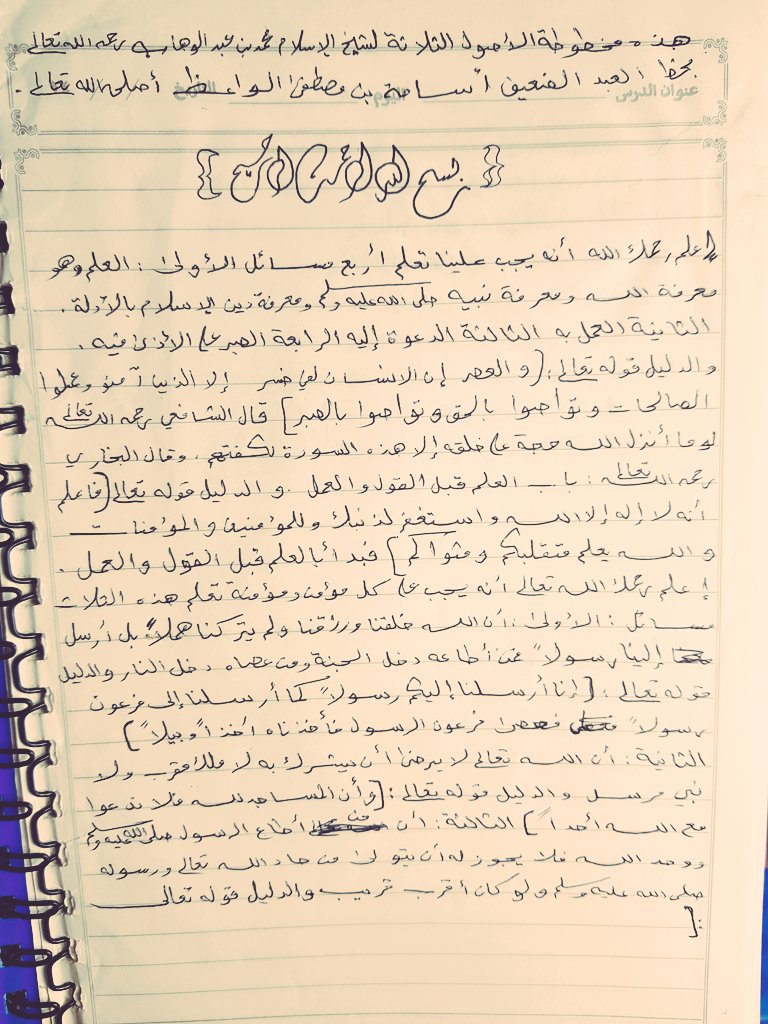 هذه مخطوطة الأصول الثلاثة لشيخ الإسلام محمد بن عبد الوهاب رحمه الله تعالى
بخط العبد الضعيف أسامة بن مصطفى الواعظ أصلحه الله تعالى .
عنوان الدرس اليوم التاريخ
{ بسم الله الرحمن الرحيم }
إعلم رحمك الله أنه يجب علينا تعلم أربع مسائل الأولى : العلم وهو
معرفة الله ومعرفة نبيه صلى الله عليه وسلم ومعرفة دين الإسلام بالأدلة .
الثانية العمل به الثالثة الدعوة إليه الرابعة الصبر على الأذى فيه .
والدليل قوله تعالى : { والعصر إن الانسان لفي خسر إلا الذين آمنو وعملوا
الصالحات وتواصوا بالحق وتواصوا بالصبر } قال الشافعي رحمه الله تعالى
لو ما أنزل الله حجة على خلقه إلا هذه السورة لكفتهم . وقال البخاري
رحمه الله تعالى : باب العلم قبل القول والعمل . والدليل قوله تعالى { فاعلم
أنه لا إله إلا الله واستغفر لذنبك وللمؤمنين والمؤمنات
والله يعلم متقلبكم ومثواكم } فبدأ بالعلم قبل القول والعمل .
إعلم رحمك الله تعالى أنه يجب على كل مؤمن ومؤمنة تعلم هذه الثلاث
مسائل : الأولى : أن الله خلقنا ورزقنا ولم يتركنا هملاً بل أرسل
إلينا رسولاً فمن أطاعه دخل الجنة ومن عصاه دخل النار والدليل
قوله تعالى : { إنا أرسلنا إليكم رسولاً كما أرسلنا إلى فرعون
رسولاً فعصى فرعون الرسول فأخذناه أخذاً وبيلاً }
الثانية : أن الله تعالى لا يرضى أن يشرك به لا ملك مقرب ولا
نبي مرسل والدليل قوله تعالى : { وأن المساجد لله فلا تدعوا
مع الله أحداً } الثالثة : أن من أطاع الرسول صلى الله عليه وسلم
ووحد الله فلا يجوز له أن يتولى من حاد الله تعالى ورسوله
صلى الله عليه وسلم ولو كان أقرب قريب والدليل قوله تعالى
: {